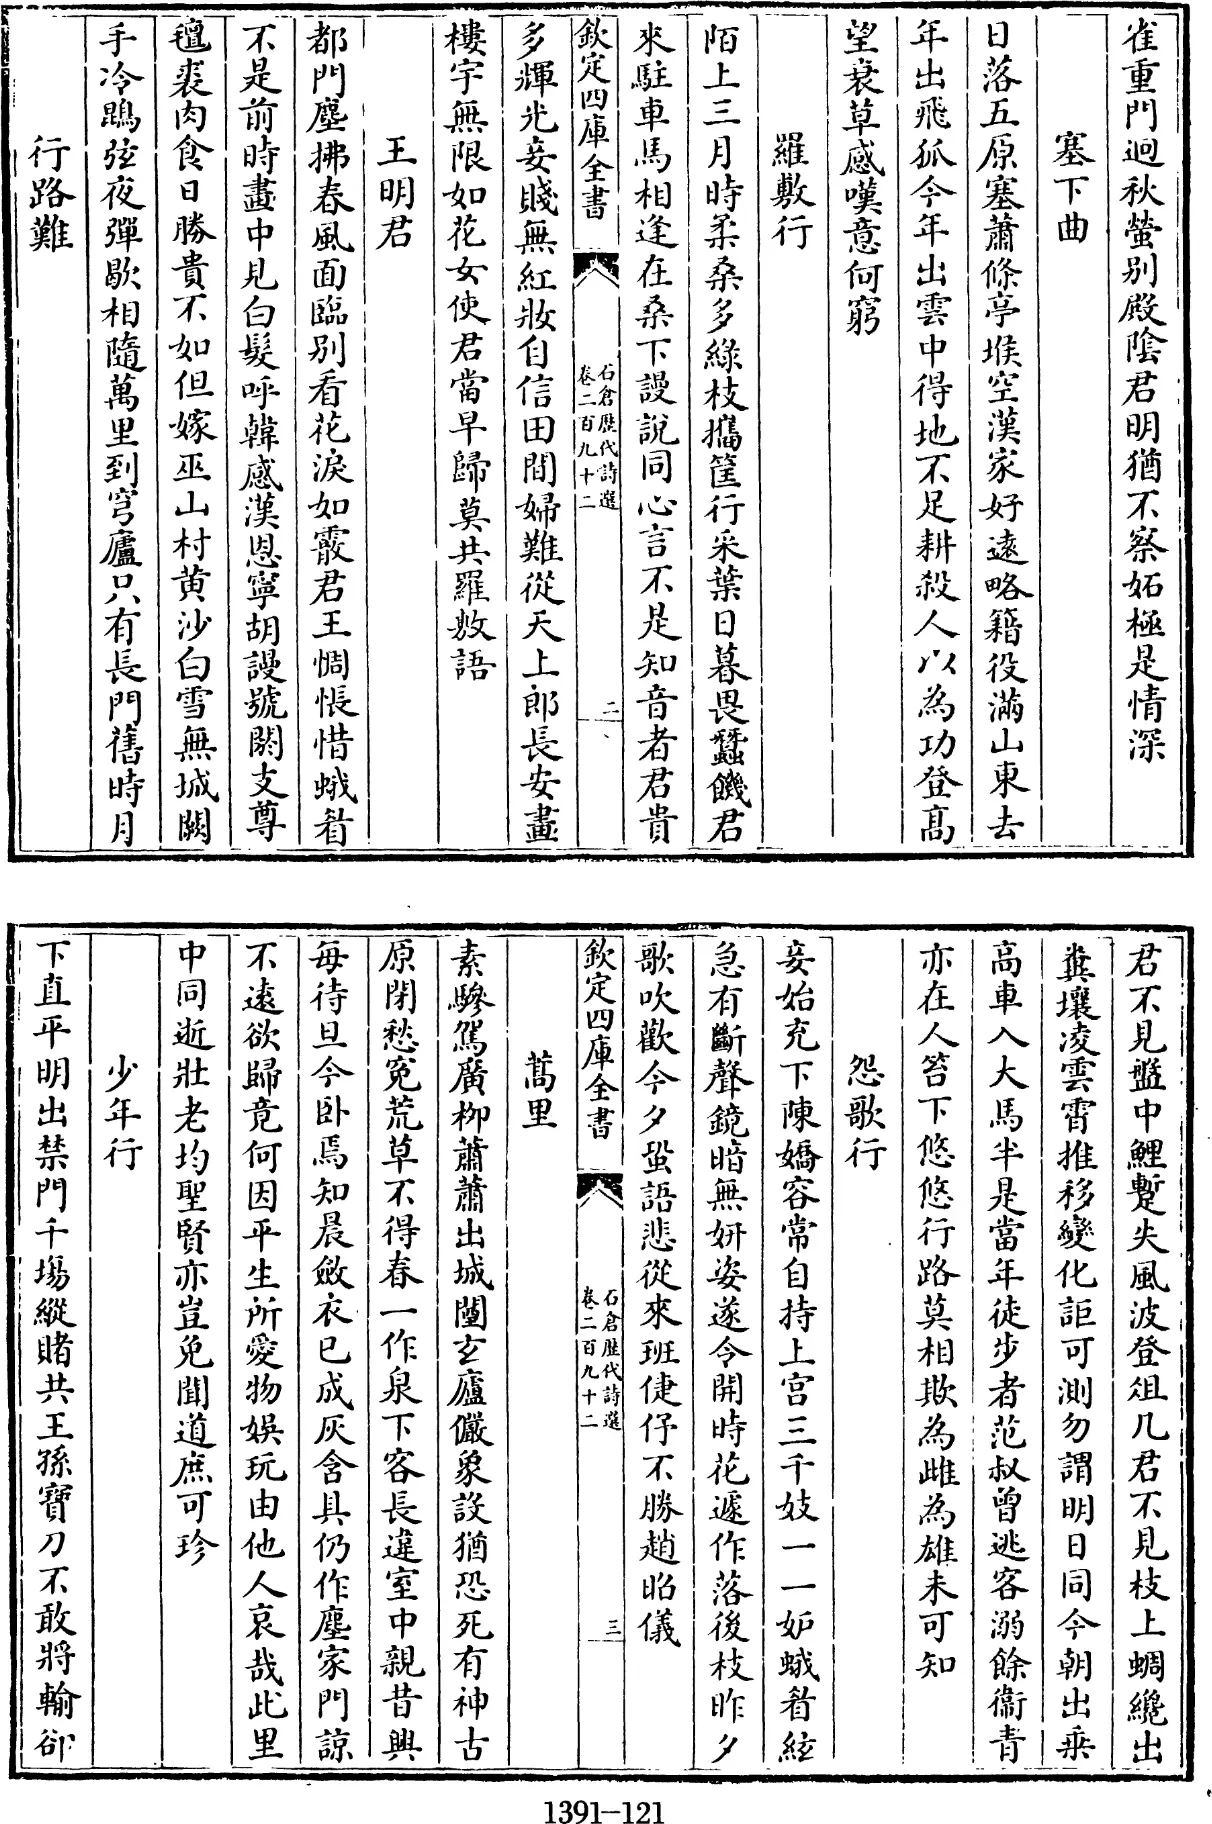 雀重門迥秋螢別殿陰君明猶不察妬極是情深
塞下曲
日落五原塞蕭條亭堠空漢家好遠略籍役滿山東去
年出飛狐今年出雲中得地不足耕殺人以為功登髙
望衰草感嘆意何窮
羅敷行
陌上三月時柔桑多綠枝攜筐行采葉日暮畏蠶饑君
來駐車馬相逢在桑下謾說同心言不是知音者君貴
欽定四庫全書
石倉歴代詩選
卷二百九十二
二
多輝光妾賤無紅妝自信田間婦難從天上郎長安畫
樓宇無限如花女使君當早歸莫共羅敷語
王明君
都門塵拂春風面臨別看花淚如霰君王惆悵惜蛾眉
不是前時畫中見白髮呼韓感漢恩寧胡謾號閼支尊
氊裘肉食日勝貴不如但嫁巫山村黄沙白雪無城闕
手冷鵾弦夜彈歇相隨萬里到穹廬只有長門舊時月
行路難
君不見盤中鯉蹔失風波登俎几君不見枝上蜩纔出
糞壤凌雲霄推移變化詎可測勿謂明日同今朝出乘
高車入大馬半是當年徒步者范叔曾逃客溺餘衞青
亦在人笞下悠悠行路莫相欺為雌為雄未可知
怨歌行
妾始充下陳嬌容常自持上宫三千妓一一妒蛾眉絃
急有斷聲鏡暗無妍姿遂令開時花遽作落後枝昨夕
歌吹歡今夕蛩語悲從來班倢伃不勝趙昭儀
欽定四庫全書
石倉歴代詩選
卷二百九十二
三
蒿里
素驂駕廣栁蕭蕭出城闉玄廬儼象設猶恐死有神古
原閉愁寃荒草不得春一作泉下客長違室中親昔興
每待旦今卧焉知晨斂衣已成灰含具仍作塵家門諒
不遠欲歸竟何因平生所愛物娯玩由他人哀哉此里
中同逝壯老均聖賢亦豈免聞道庶可珍
少年行
下直平明出禁門千塲縱賭共王孫寶刀不敢將輸卻
1391—121